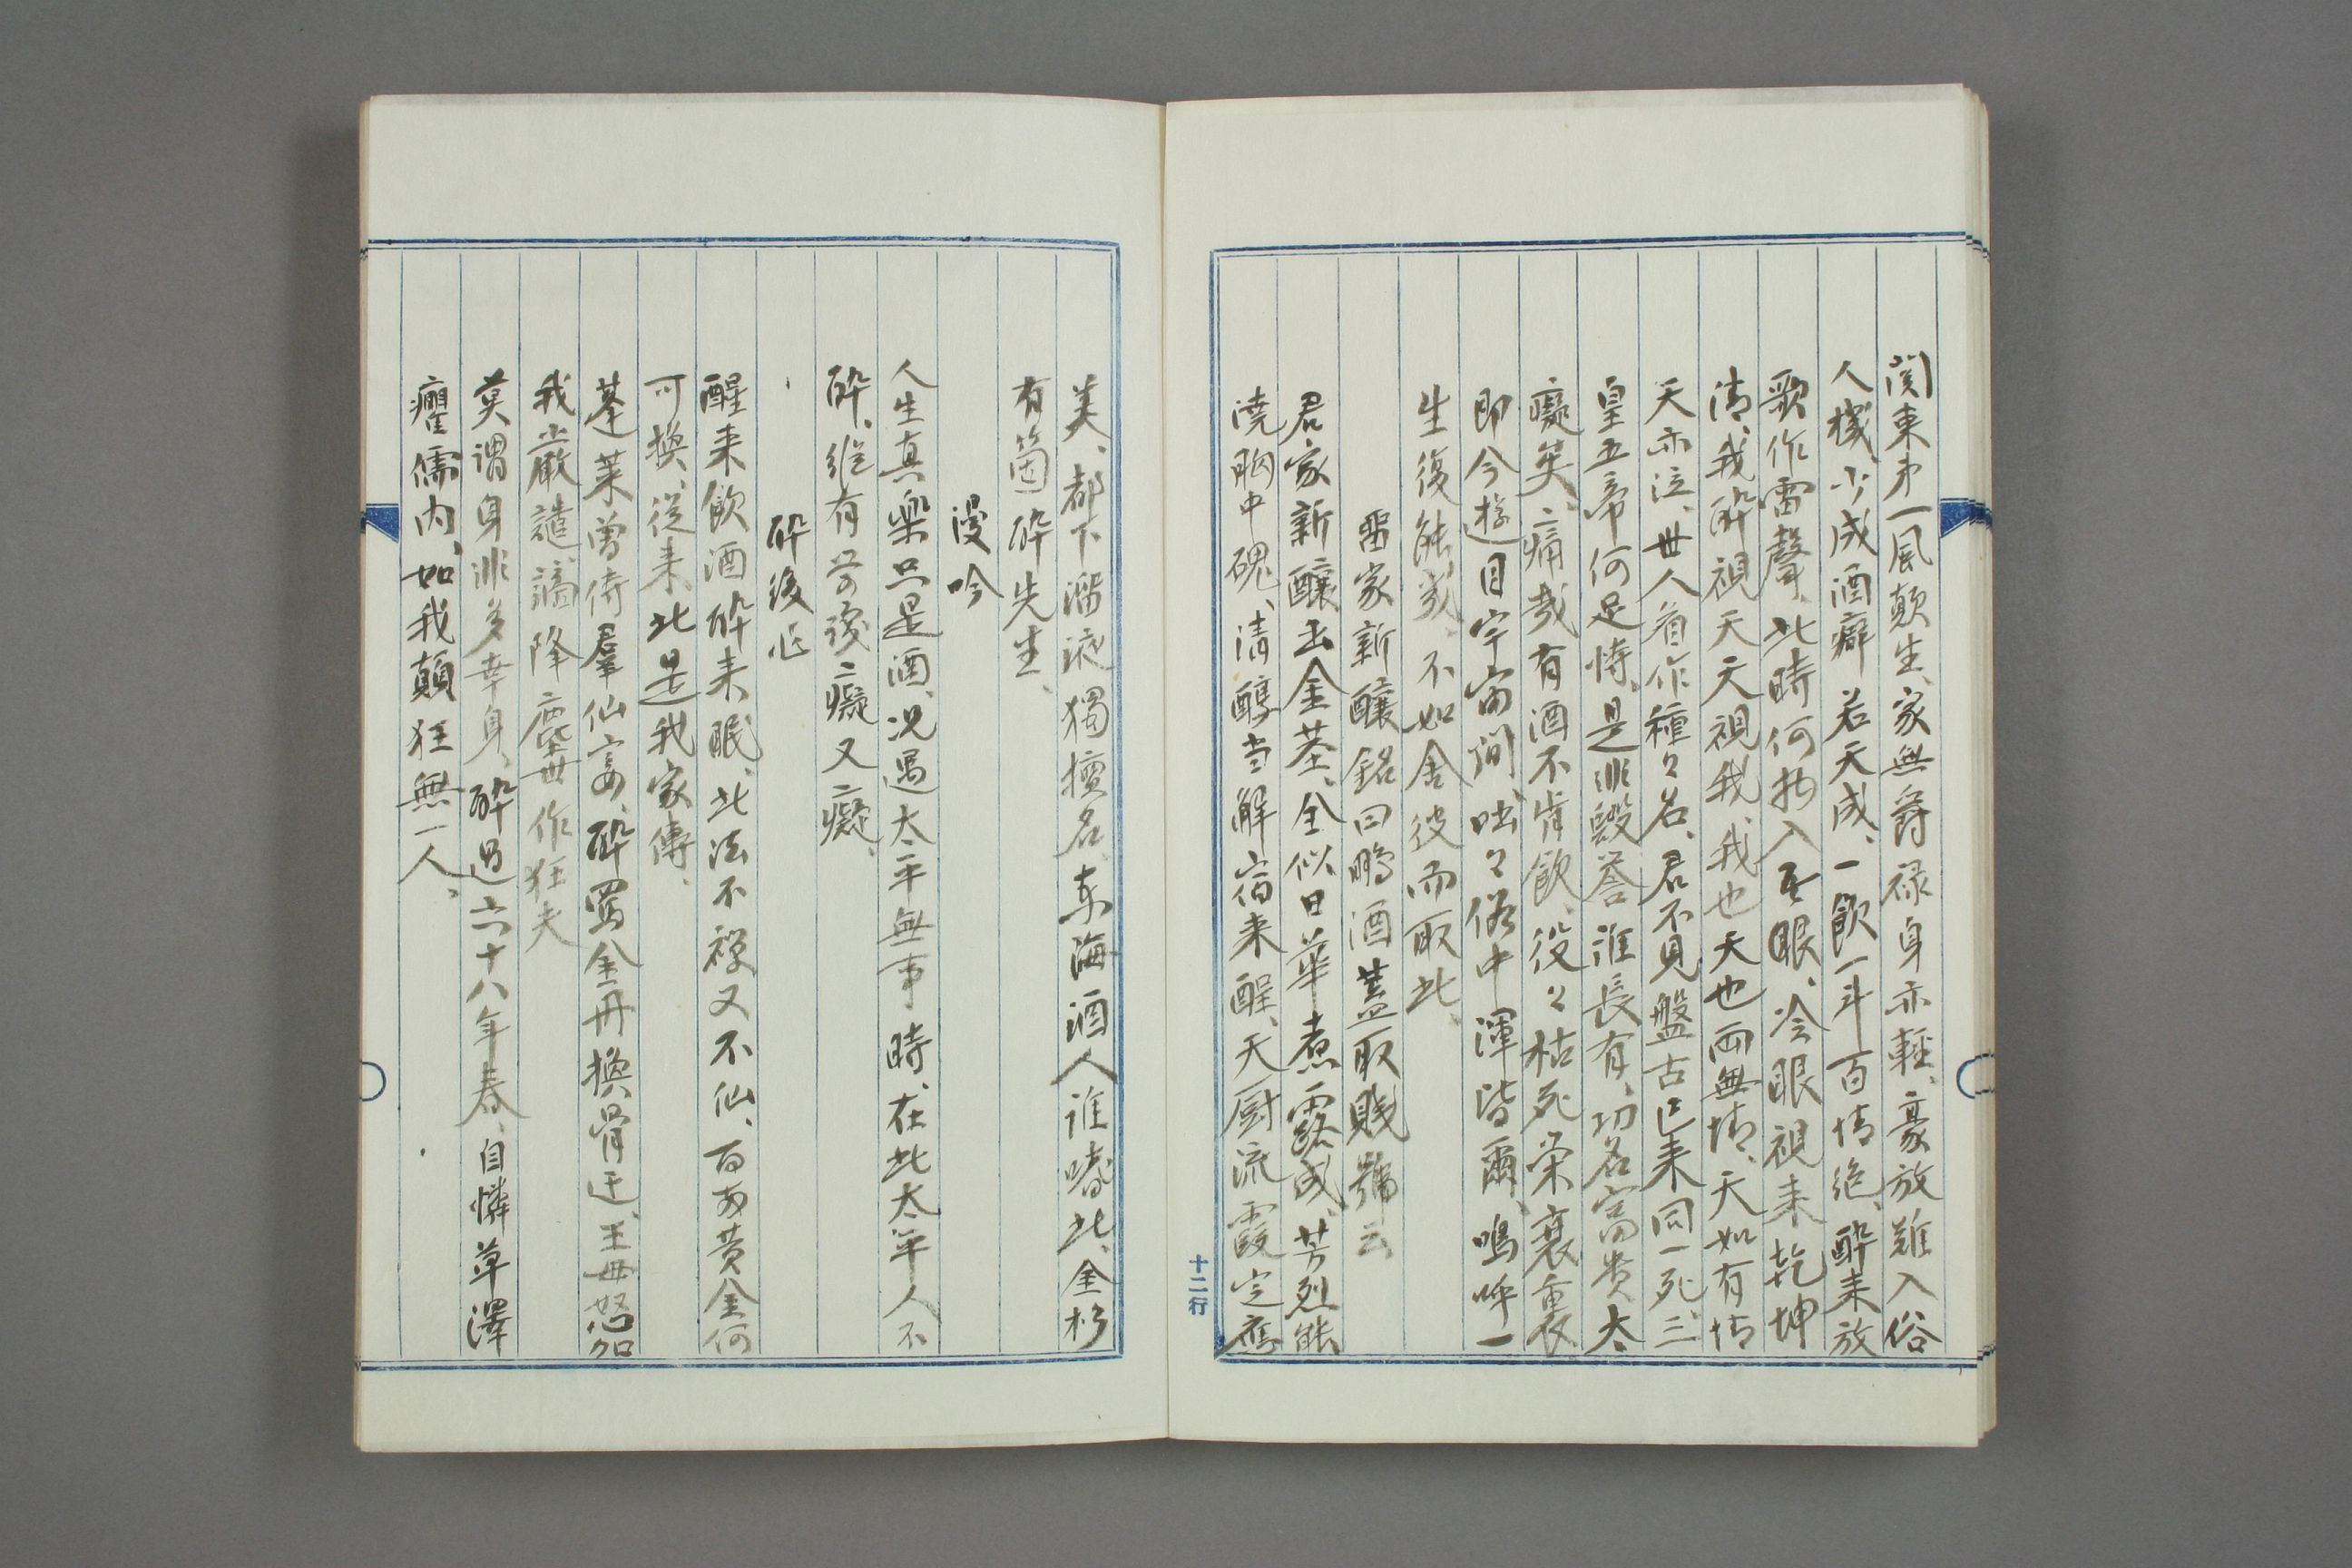 関東第一風顛生、家無爵禄身亦輕、豪放難入俗
人機、少成酒癖若天成、一飲一斗百情絶、酔来放
歌作雷聲、此時何物入吾眼、冷眼視来乾坤
清、我酔視天天視我、我也天也両無情、天如有情
天亦泣、世人看作種々名、君不見盤古已来同一死、三
皇五帝何足恃、是非毀誉誰長有、功名富貴太
癡矣、痛哉有酒不肯飲、役々枯死栄衰裏
即今遊目宇宙間、咄々俗中渾皆爾、嗚呼一
生復能幾、不如舎彼而取此、
雷家新醸銘曰鵬酒蓋取賤號云
君家新醸玉金茎、全似日華煮露成、芳烈能
澆胸中磈、清醇当解宿来酲、天厨流霞定應
十二行
美、都下溜液獨擅名、東海酒人誰嗜此、金杉
有箇酔先生、
漫吟
人生真楽只是酒、况遇太平無事時、在此太平人不
酔、縦有芳後癡又癡、
酔後作
醒来飲酒酔来眠、此法不禅又不仙、百両黄金何
可換、従来此是我家傳、
蓬莱曽侍羣仙宴、酔罵金丹換骨迂、王母怒加
我嚴譴、謫降塵世作狂夫
莫謂身非多幸身、酔過六十八年春、自憐草澤
癯儒内、如我顛狂無一人、